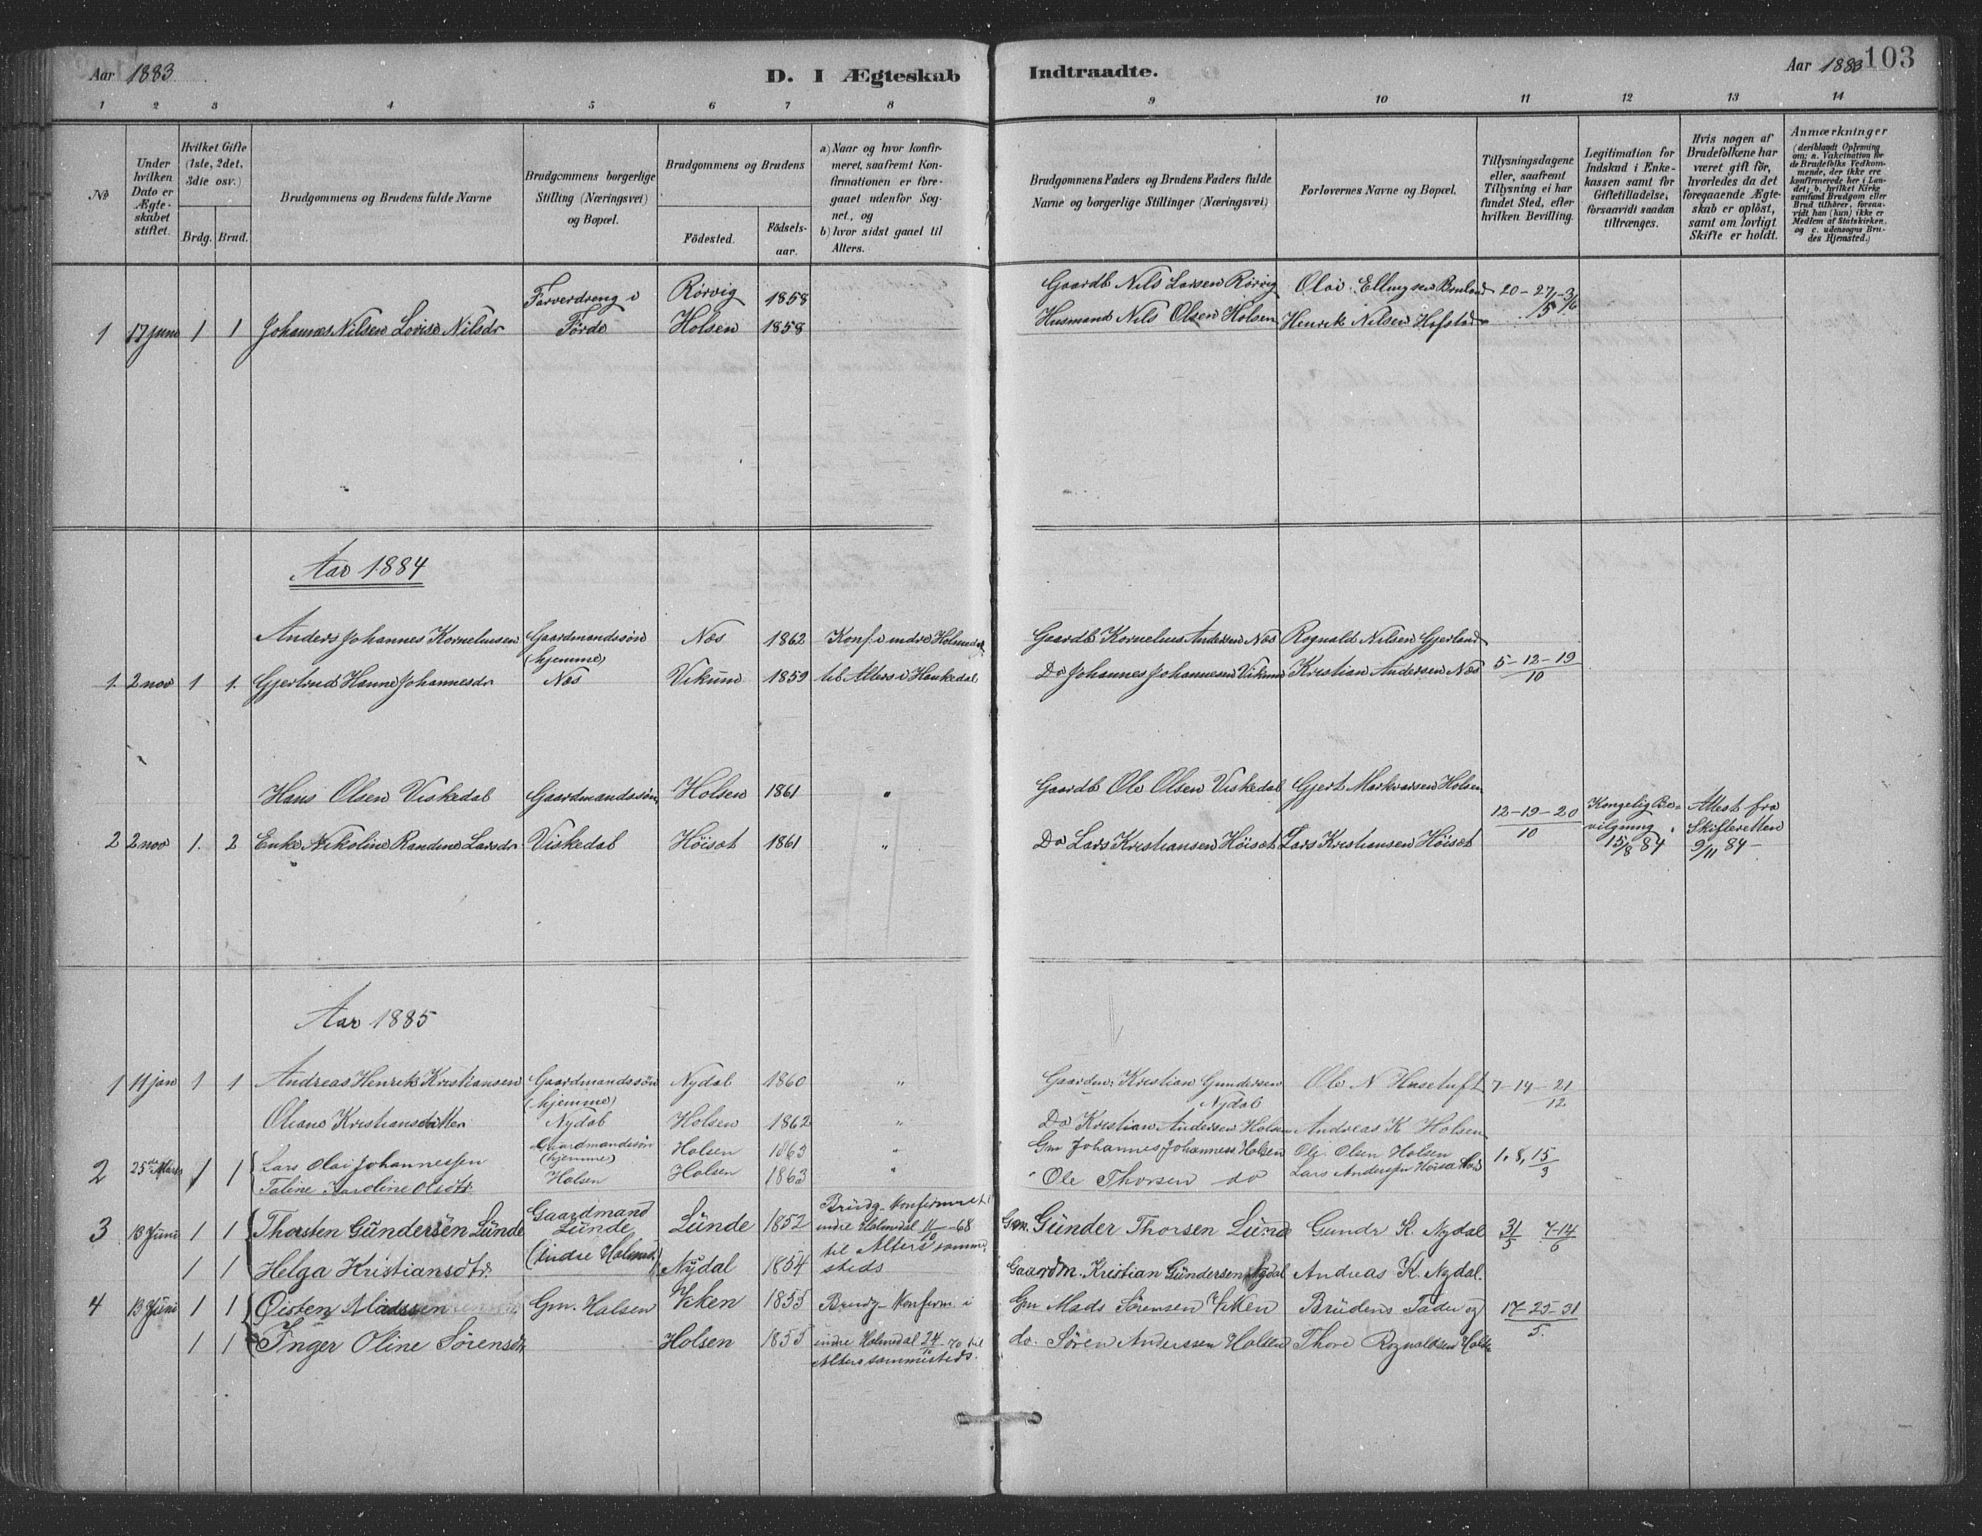 Aar 1883
D. I Ægteskab Indtraadte.
Aar 1883
103
1 2 3 4 5 6 7 8 9 10 11 12 13 14
No
Under hvilken Dato er Ægteskabet stiftet.
Hvilket Gifte (1ste, 2det, 3die osv.)
Brdg. Brud.
Brudgommens og Brudens fulde Navne
Brudgommens borgerlige Stilling (Næringsvei) og Bopæl.
Brudgommens og Brudens
Fødested.
Fødselsaar.
a) Naar og hvor konfirmeret, saafremt Konfirmationen er foregaaet udenfor Sognet, og
b) hvor sidst gaaet til Alters.
Brudgommens Faders og Brudens Faders fulde Navne og borgerlige Stillinger (Næringsvei)
Forlovernes Navne og Bopæl.
Tillysningsdagene eller, saafremt Tillysning ei har fundet Sted, efter hvilken Bevilling.
Legitimation for Indskud i Enkekassen samt for Giftetilladelse, forsaavidt saadan tiltrænges.
Hvis nogen af Brudefolkene har været gift før, hvorledes da det foregaaende Ægteskab er opløst, samt om lovligt Skifte er holdt.
Anmærkninger (deriblandt Oplysning om: a. Vakcination for de Brudefolks Vedkommende, der ikke ere konfirmerede her i Landet; b. hvilket Kirkesamfund Brudgom eller Brud tilhører, forsaavidt han (hun) ikke er Medlem af Statskirken, og c. udensogns Brudes Hjemsted.)
Farverdreng i Rörvig 1858 Gaardb Nils Larsen Rörvig Olai Ellingsen Bruland 20-27/5-3/6
1 17 juni 1 1 Johannes Nilsen Lovise Nilsdr Förde Holsen 1858 Husmand Nils Olsen Holsen Henrik Nilsen Hafstad
Aar 1884
Anders Johannes Kornelius­en Gaardmandssön Næs 1862 Konf. i indre Holmedal Gaardb Kornelius Andersen Næs Rognald Nilsen Gjerland
(hjemme)
1. 2 nov 1 1. Gjertrud Hanne Johannesdr Næs Vikum 1859 til Alters i Haukedal Do Johannes Johannesen Vikum Kristian Andersen Næs 5-12-19/10
Hans Olsen Viskedal Gaardmandssön Holsen 1861 " Gaardb Ole Olsen Viskedal Gjert Markvarsen Holsen
2 2 nov 1. 2 Enke Nikoline Randine Larsdr Viskedal Höisæt 1861 " Do Lars Kristiansen Höisæt Lars Kristiansen Höisæt 12-19-20/10 Kongelig Bevilgning 15/8 84 Attest fra Skifteretten 9/11 84-
Aar 1885
1 11 jan 1 1 Andreas Henrik Kristiansen Gaardmandssön Nydal 1860 " Gaardm. Kristian Gundersen Nydal Ole N Hasetuft 7-14-21/12
(hjemme)
Oliane Kristiansdatter Nydal Holsen 1862 " Do Kristian Andersen Holsen Andreas K Holsen
2 25de Marts 1 1 Lars Olai Johannessen Gaardmandssön (hjemme) Holsen 1863 " Gm Johannes Johannesn Holsen Ole Olsen Holsen 1, 8, 15/3
Taline Karoline Olsdtr. Holsen Holsen 1863 " Ole Thorsen do Lars Anderssen
3 13 Juni 1 1 Thorsten Gündersen Lünde Gaardmand Lünde Lünde 1852 Brüdg. Konfirmeret i indre Holmedal 11/10-68 Gm. Günder Thorsen Lünd Gundr K. Nydal 31/5 7-14/6
1 1 Helga Kristiansdtr. (indre Holmed.) Nydal 1854 til Alters sammesteds Gaardm. Kristian Gündersen Nydal Andreas K. Nydal.
4 13 Juni 1 1 Öisten Madssen Gm. Holsen Ykken 1855 Brüdg. Konfirm. i Gm Mads Sörensen Ykken Brüdens Fader og 17-25-31/5.
1 1 Inger Oline Sörensdtr Holsen 1855 indre Holmedal 24/10-70 til Alters sammesteds. do. Sören Anderssen Holsen Thore Rognaldsen